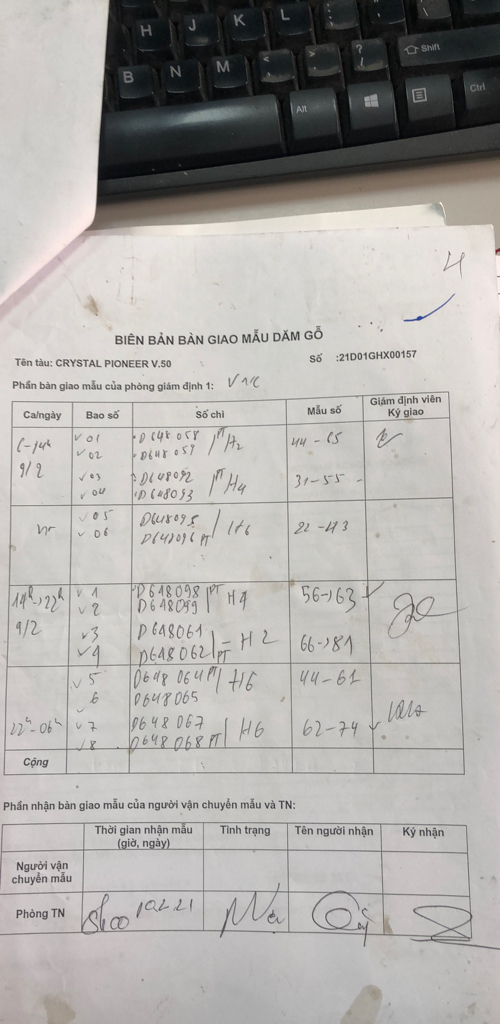 H J K L
B N M < , > . ? / Shift
Alt Ctrl
4
BIÊN BẢN BÀN GIAO MẪU DĂM GỖ
Tên tàu: CRYSTAL PIONEER V.50 Số :21D01GHX00157
Phần bàn giao mẫu của phòng giám định 1:
Ca/ngày Bao số Số chì Mẫu số Giám định viên
Ký giao
01 D648058 PT H2 44-65
9/2 02 D648059
03 D648092 PT H4 31-55
04 D648093
05 D648095 H6 22-43
06 D648096 PT
14h->22h 1 D648098 PT H4 56->63
2 D648099
9/2 3 D648061 H2 66->81
4 D648062 PT
5 D648064 PT H6 44-61
6 D648065
22h-06h 7 D648067 H6 62-74
8 D648068 PT
Cộng
Phần nhận bàn giao mẫu của người vận chuyển mẫu và TN:
Thời gian nhận mẫu
(giờ, ngày) Tình trạng Tên người nhận Ký nhận
Người vận
chuyển mẫu
Phòng TN 8h00 10.2.21